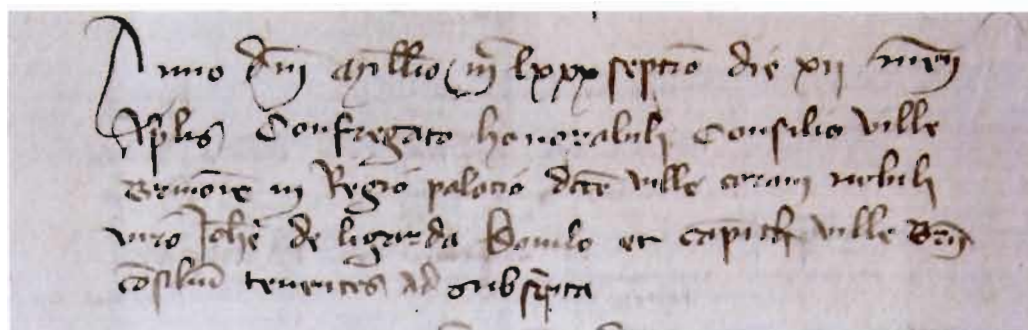 Anno dni millio iiiᶜ lxxx septio die xii mens
Aplis Congregato honorabili Consilio ville
in Regio palacio dcte ville coram nobili
viro Johe de ligarda et capit ville
consiliu tenentes ad subscpta